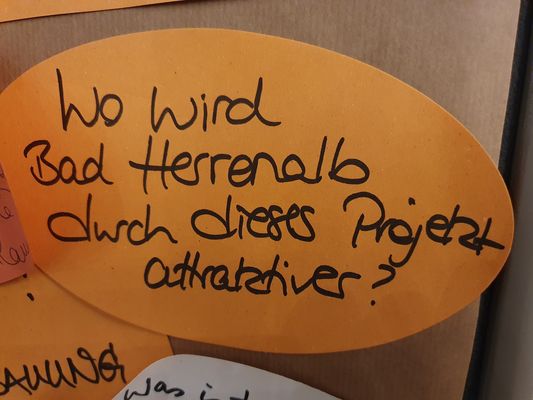 Wo wird
Bad Herrenalb
durch dieses Projekt
attraktiver?
was ist